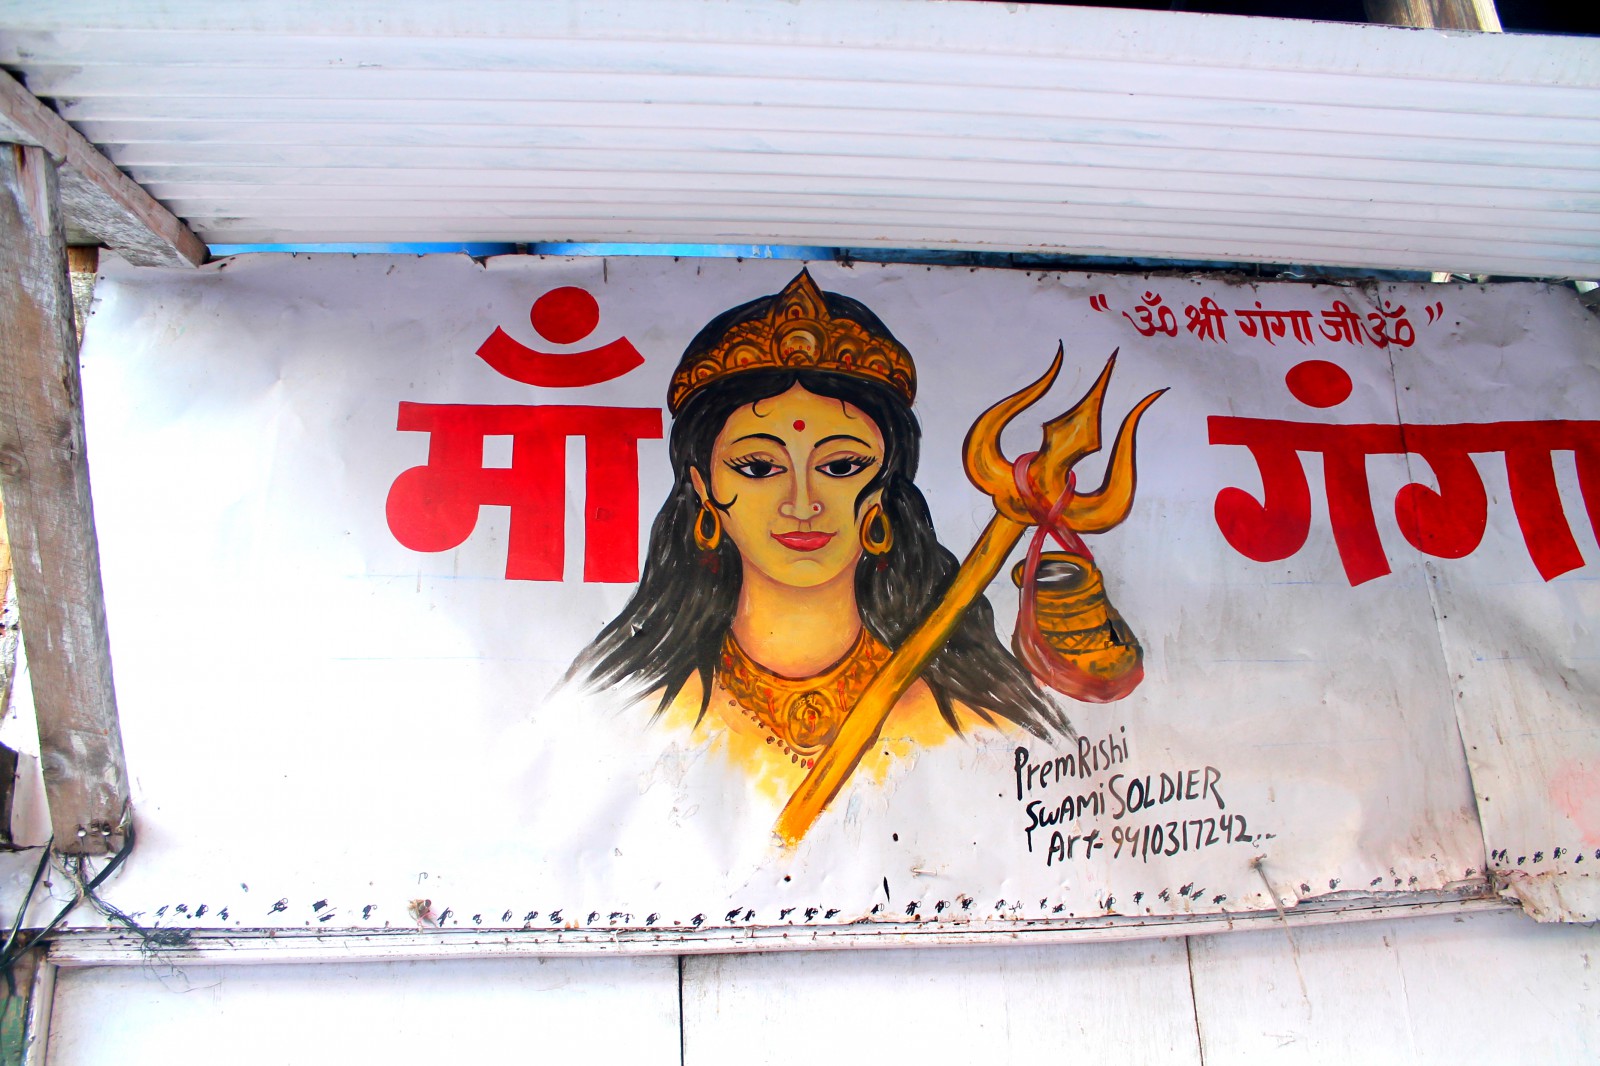 "ॐ श्री गंगा जी ॐ"
माँ गंगा
PremRishi
SWAMi SOLDIER
Art- 9410317242..